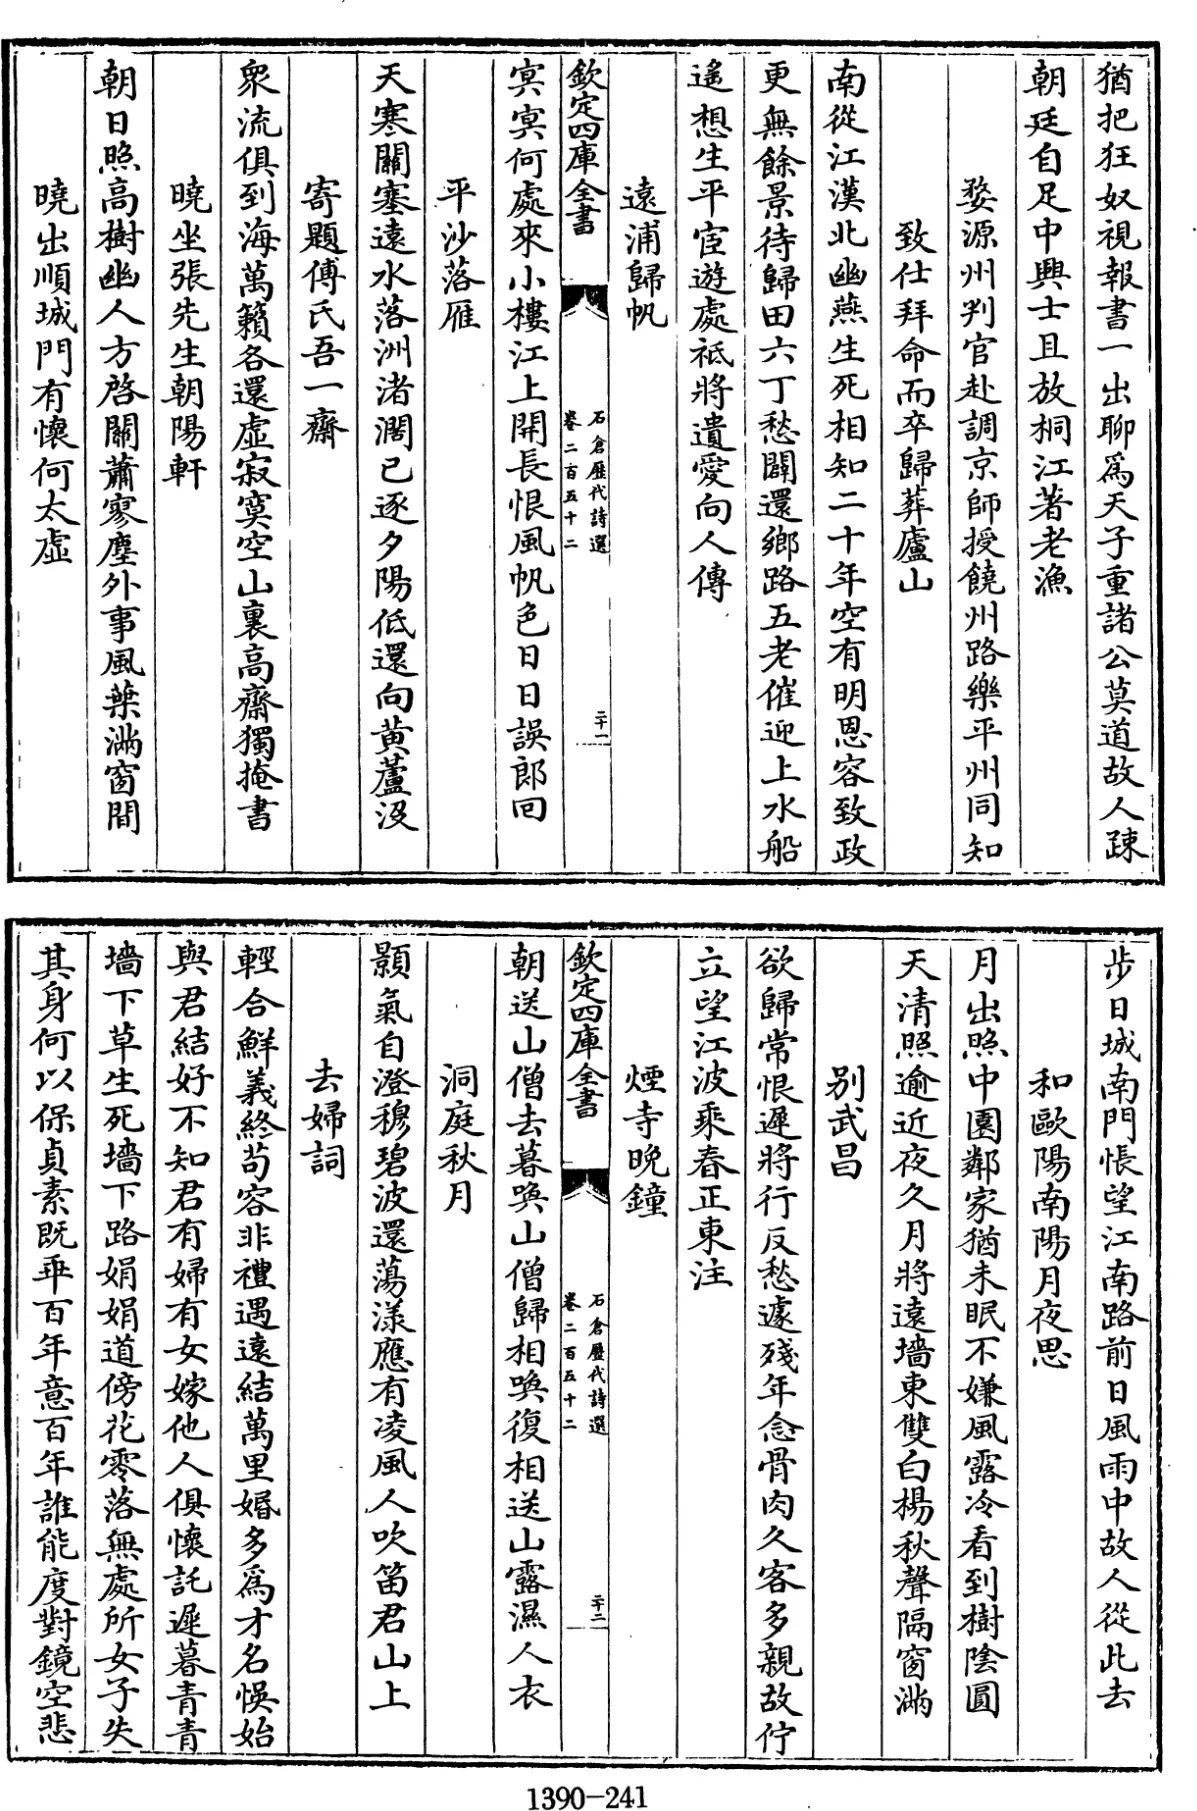 猶把狂奴視報書一出聊爲天子重諸公莫道故人疎
朝廷自足中興士且放桐江著老漁
婺源州判官赴調京師授饒州路樂平州同知
致仕拜命而卒歸葬廬山
南從江漢北幽燕生死相知二十年空有明恩容致政
更無餘景待歸田六丁愁闢還鄉路五老催迎上水船
遙想生平宦遊處祗將遺愛向人傳
遠浦歸帆
欽定四庫全書
石倉歷代詩選
卷二百五十二
二十一
冥冥何處來小樓江上開長恨風帆色日日誤郎回
平沙落雁
天寒關塞遠水落洲渚濶已逐夕陽低還向黄蘆沒
寄題傅氏吾一齋
衆流俱到海萬籟各還虛寂寞空山裏高齋獨掩書
曉坐張先生朝陽軒
朝日照高樹幽人方啓關蕭寥塵外事風葉滿窗間
曉出順城門有懷何太虛
步日城南門悵望江南路前日風雨中故人從此去
和歐陽南陽月夜思
月出照中園鄰家猶未眠不嫌風露冷看到樹陰圓
天清照逾近夜久月將遠墻東雙白楊秋聲隔窗滿
别武昌
欲歸常恨遲將行反愁遽殘年念骨肉久客多親故佇
立望江波乘春正東注
煙寺晩鐘
欽定四庫全書
石倉歷代詩選
卷二百五十二
二十二
朝送山僧去暮喚山僧歸相喚復相送山露濕人衣
洞庭秋月
顥氣自澄穆碧波還蕩漾應有凌風人吹笛君山上
去婦詞
輕合鮮義終苟容非禮遇遠結萬里婚多爲才名悞始
與君結好不知君有婦有女嫁他人俱懷託遲暮青青
墻下草生死墻下路娟娟道傍花零落無處所女子失
其身何以保貞素既乖百年意百年誰能度對鏡空悲
1390-241